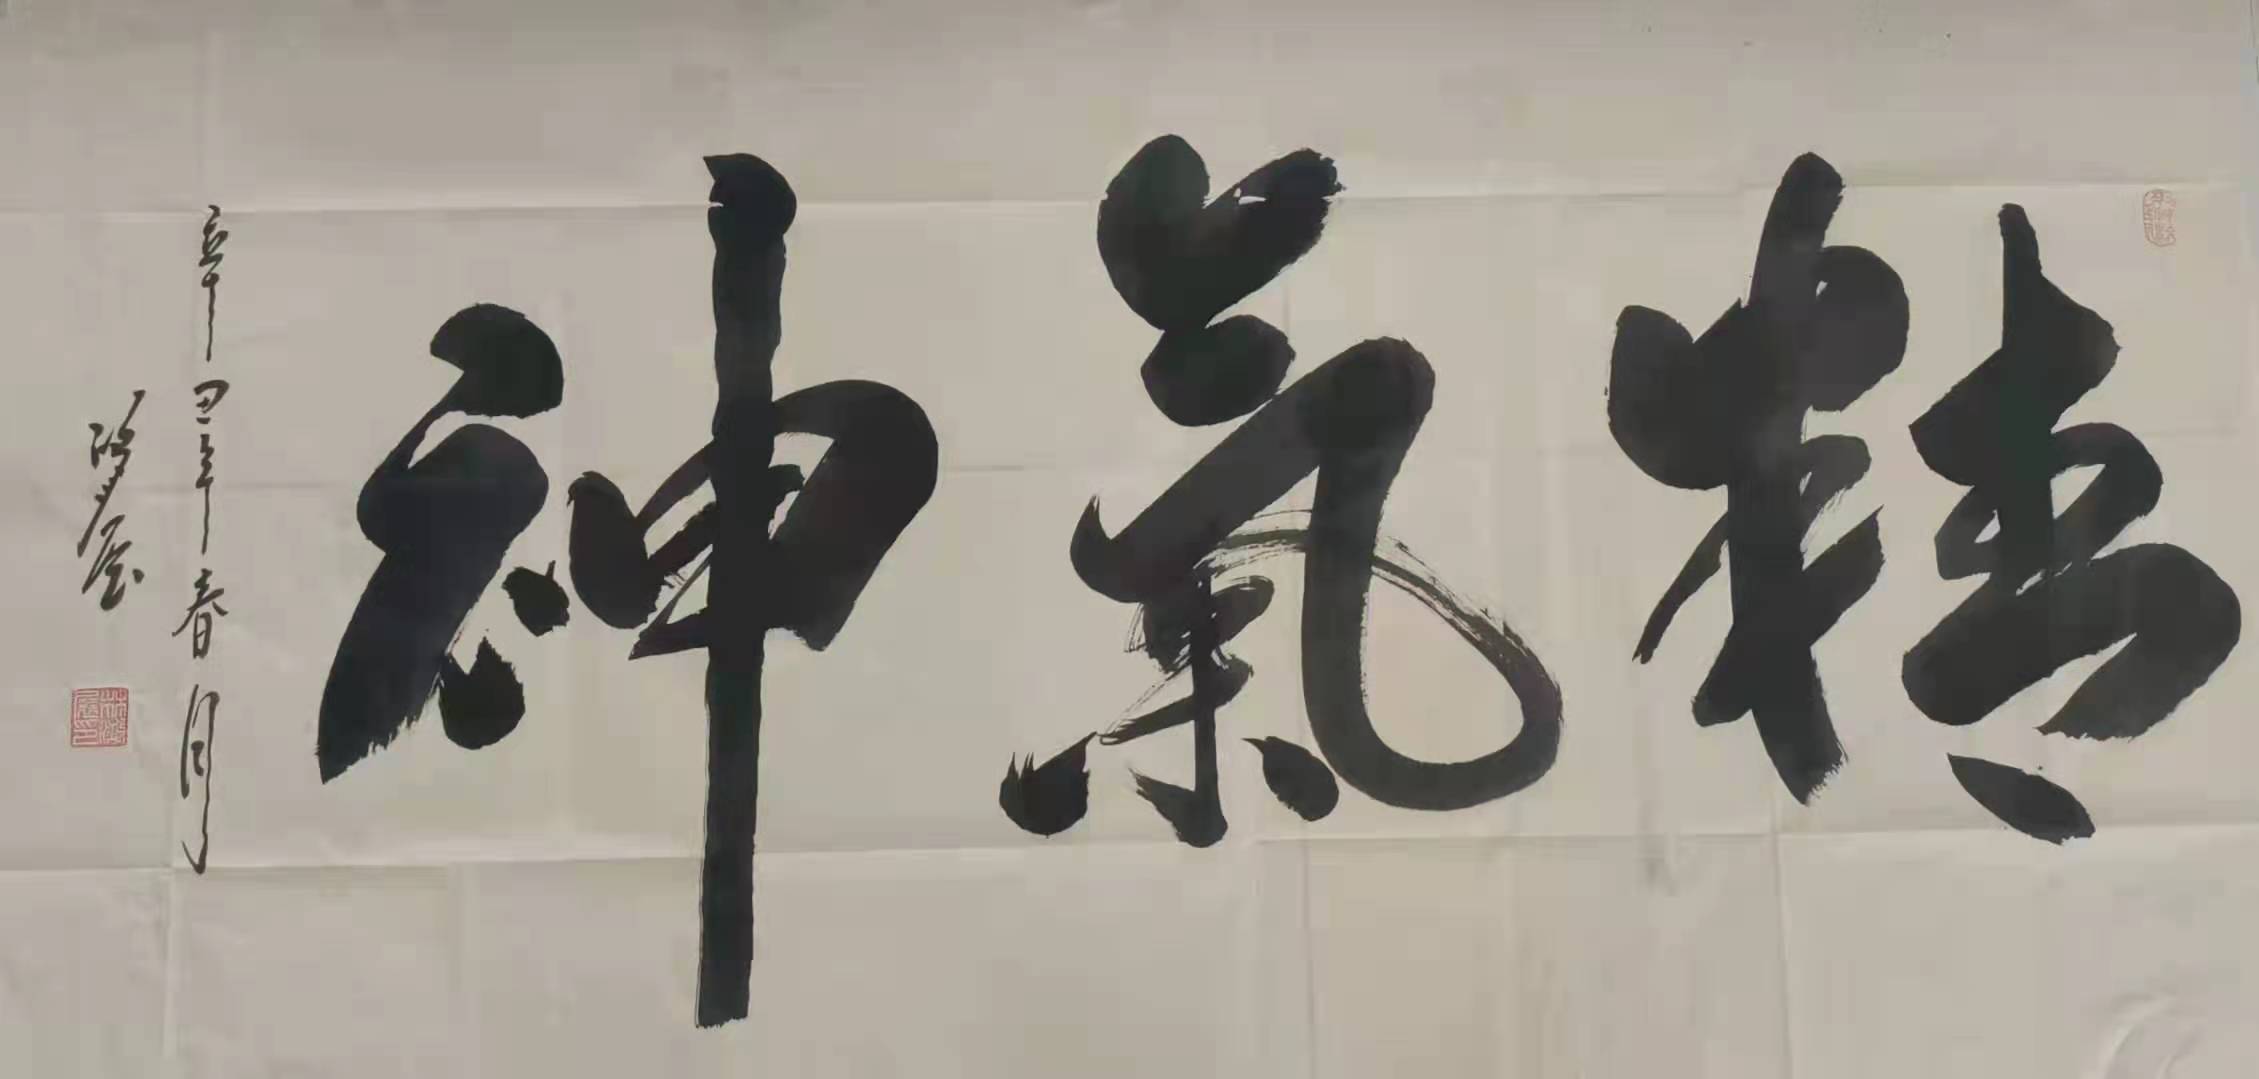 精氣神
辛丑年春月